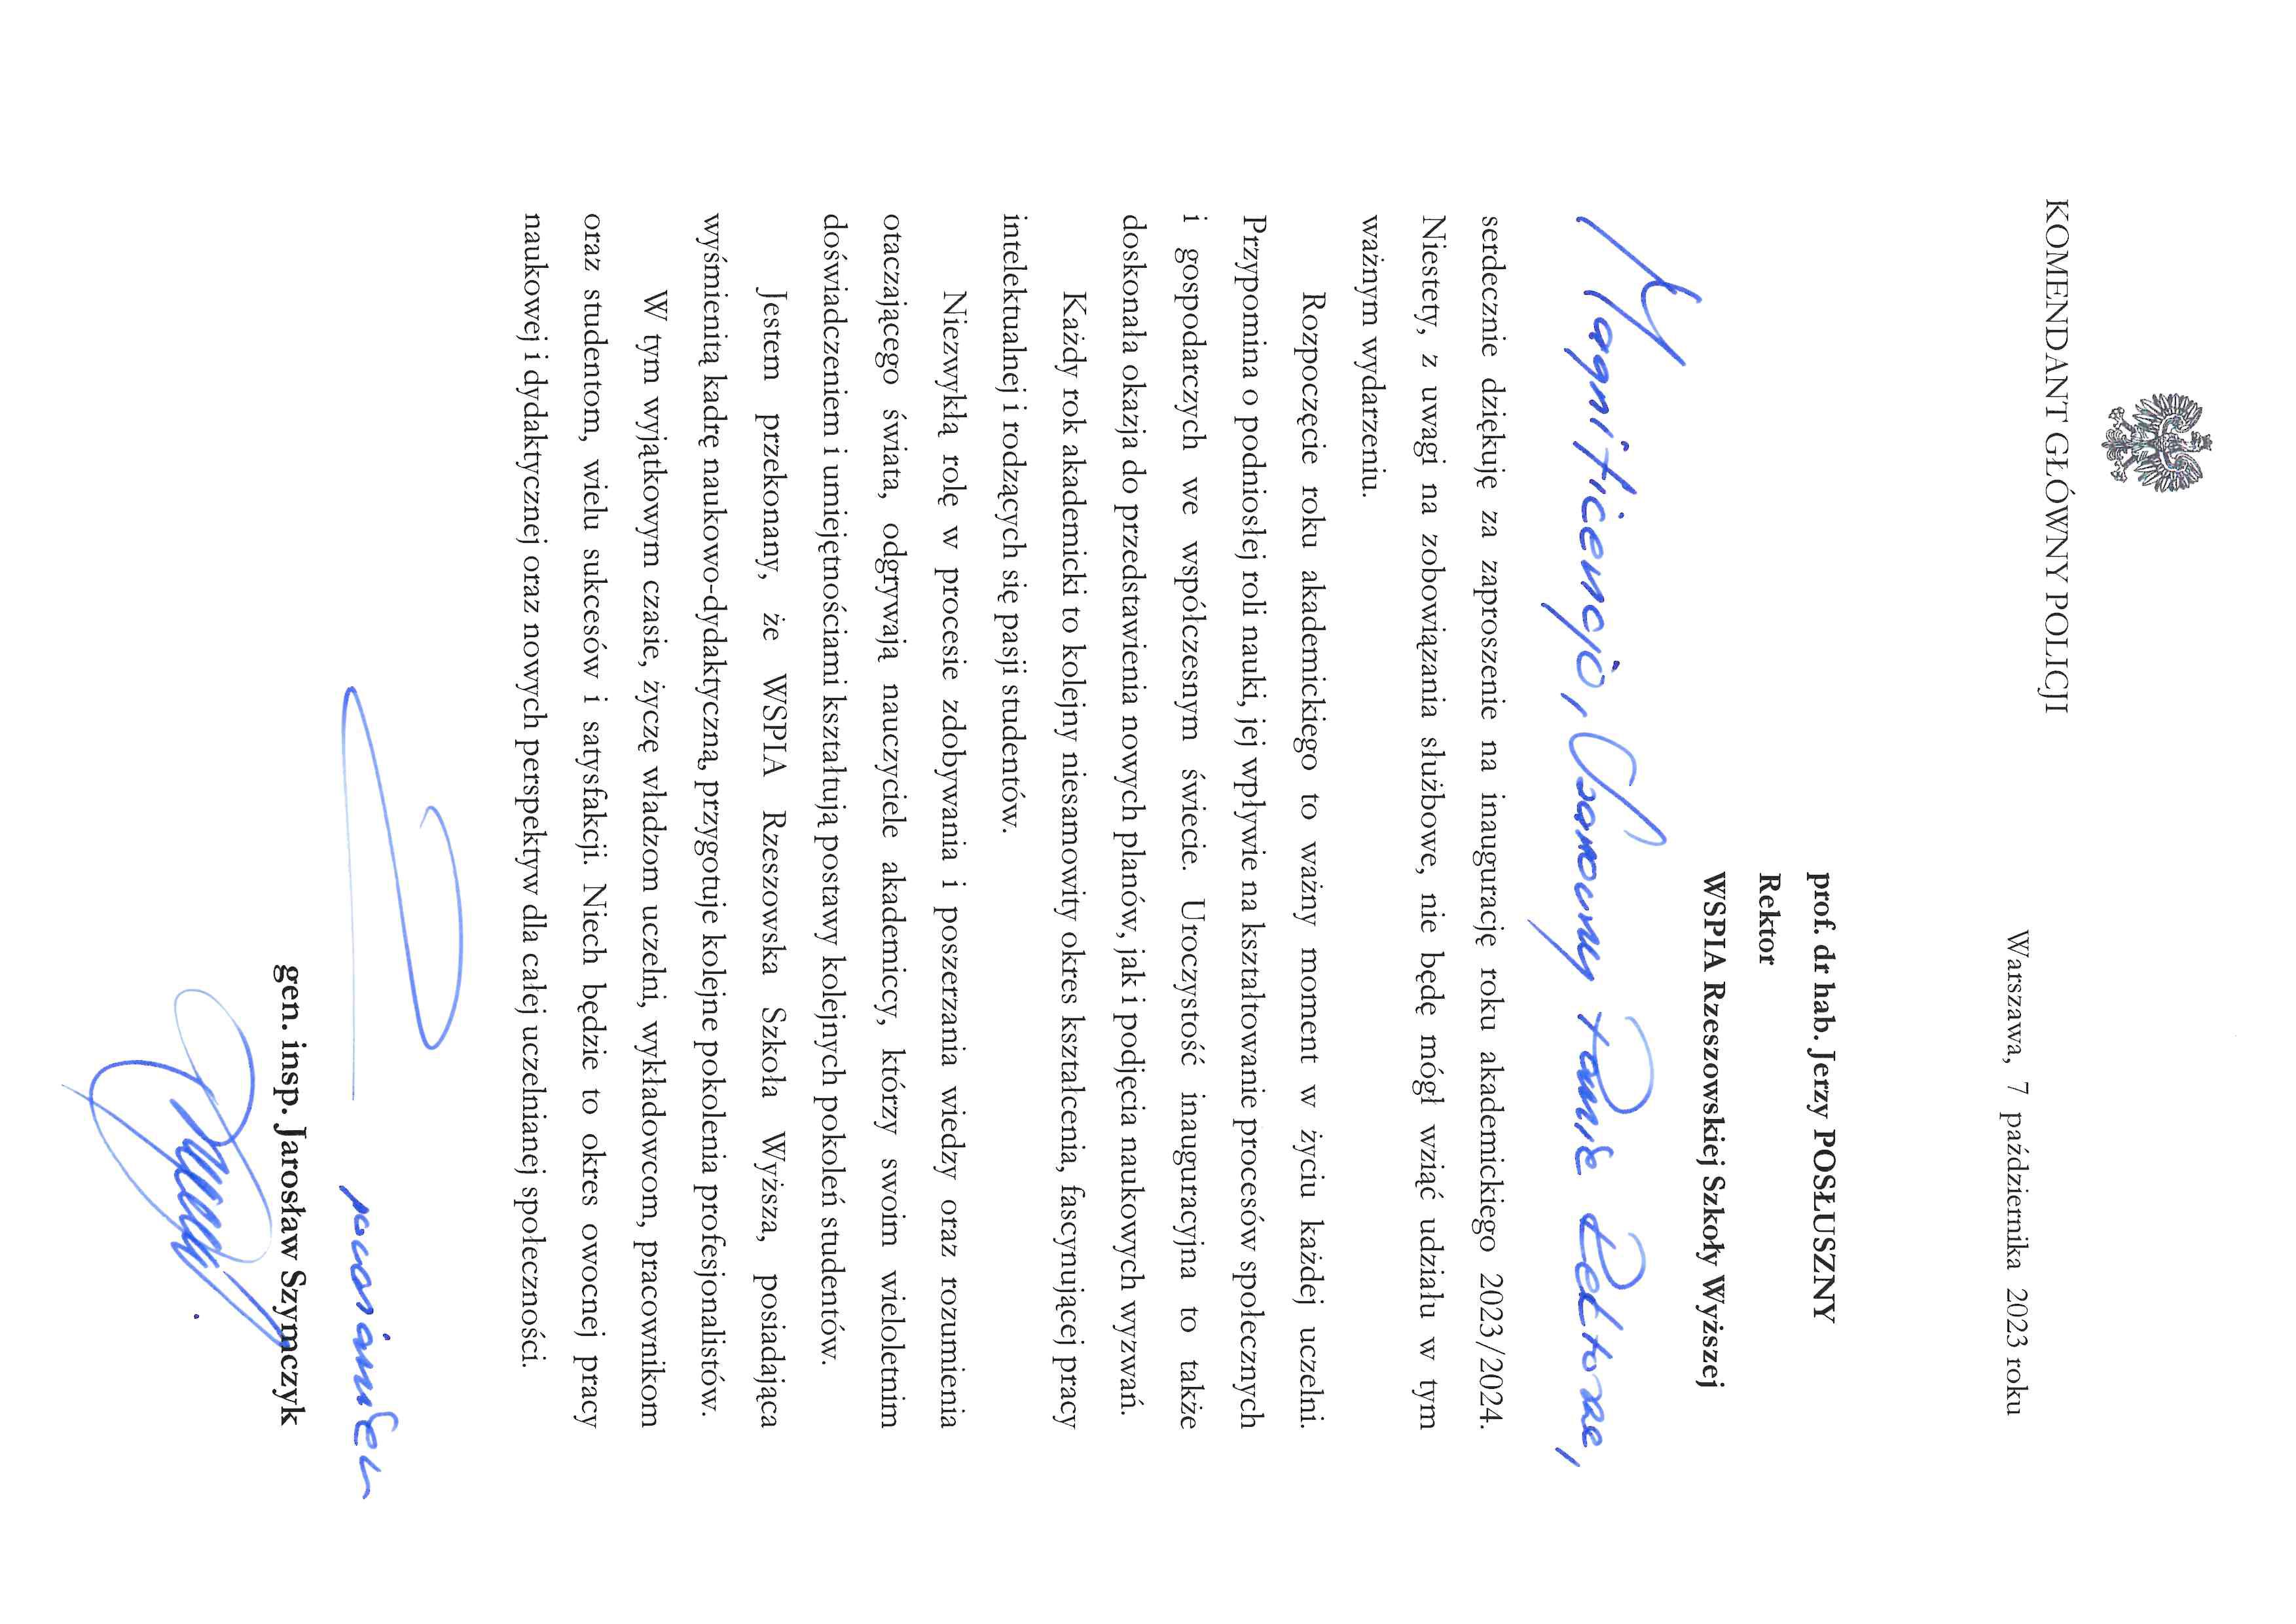 KOMENDANT GŁÓWNY POLICJI
Warszawa, 7 października 2023 roku
prof. dr hab. Jerzy POSŁUSZNY
Rektor
WSPIA Rzeszowskiej Szkoły Wyższej
Magnificencjo, Szanowny Panie Rektorze,
serdecznie dziękuję za zaproszenie na inaugurację roku akademickiego 2023/2024.
Niestety, z uwagi na zobowiązania służbowe, nie będę mógł wziąć udziału w tym
ważnym wydarzeniu.
Rozpoczęcie roku akademickiego to ważny moment w życiu każdej uczelni.
Przypomina o podniosłej roli nauki, jej wpływie na kształtowanie procesów społecznych
i gospodarczych we współczesnym świecie. Uroczystość inauguracyjna to także
doskonała okazja do przedstawienia nowych planów, jak i podjęcia naukowych wyzwań.
Każdy rok akademicki to kolejny niesamowity okres kształcenia, fascynującej pracy
intelektualnej i rodzących się pasji studentów.
Niezwykłą rolę w procesie zdobywania i poszerzania wiedzy oraz rozumienia
otaczającego świata, odgrywają nauczyciele akademiccy, którzy swoim wieloletnim
doświadczeniem i umiejętnościami kształtują postawy kolejnych pokoleń studentów.
Jestem przekonany, że WSPIA Rzeszowska Szkoła Wyższa, posiadająca
wyśmienitą kadrę naukowo-dydaktyczną, przygotuje kolejne pokolenia profesjonalistów.
W tym wyjątkowym czasie, życzę władzom uczelni, wykładowcom, pracownikom
oraz studentom, wielu sukcesów i satysfakcji. Niech będzie to okres owocnej pracy
naukowej i dydaktycznej oraz nowych perspektyw dla całej uczelnianej społeczności.
gen. insp. Jarosław Szymczyk